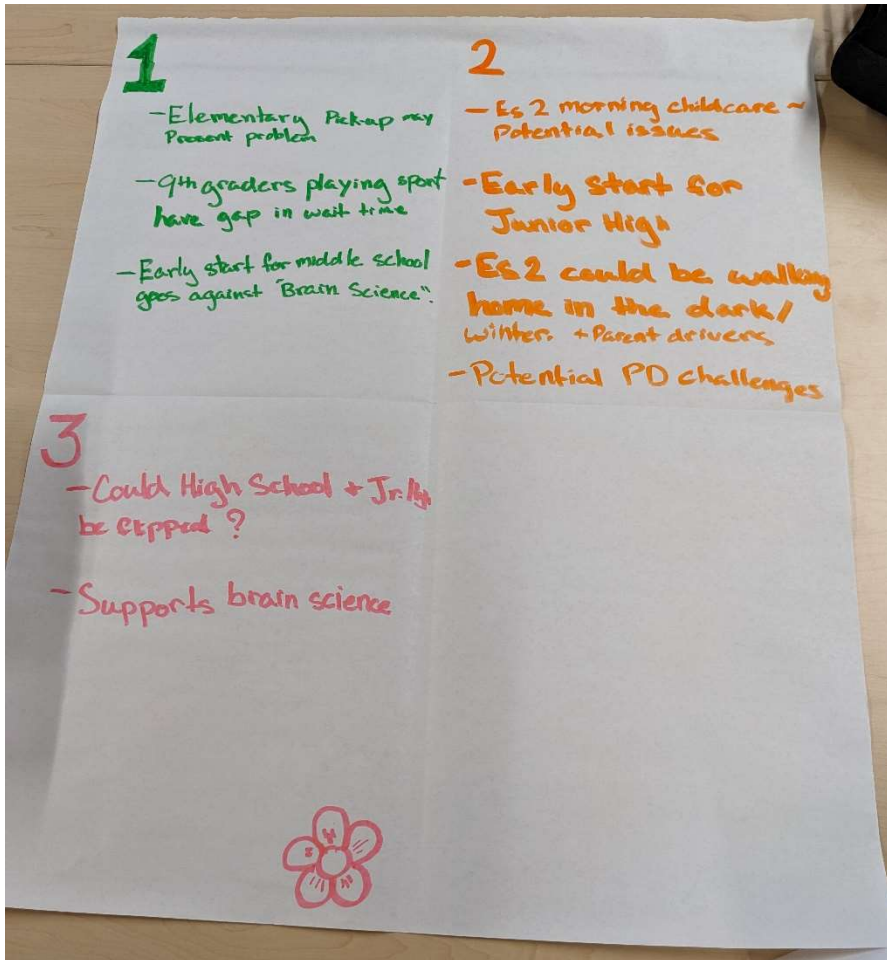 1
-Elementary Pick-up may
Present problem
-9th graders playing sport
have gap in wait time
-Early start for middle school
goes against "Brain Science".
2
-Es 2 morning childcare ~
Potential issues
-Early Start for
Junior High
-Es 2 could be walking
home in the dark/
winter. + Parent drivers
-Potential PD challenges
3
-Could High School + Jr. High
be ?
-Supports brain science